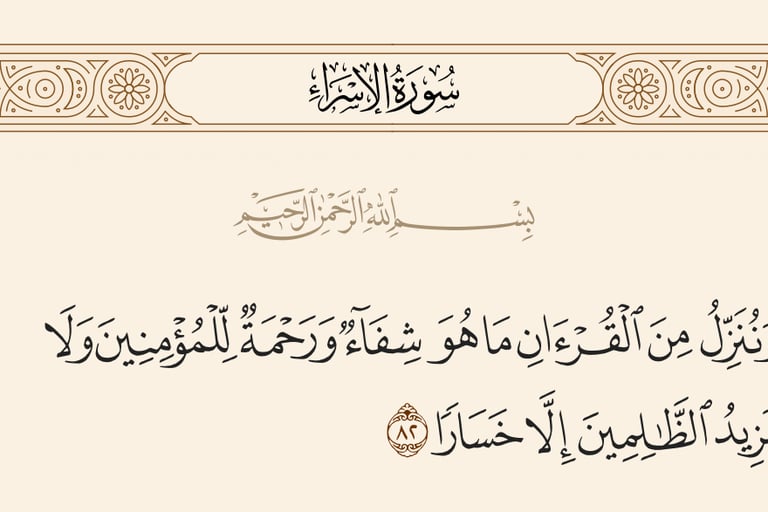 سُورَةُ الإِسْرَاءِ
بِسْمِ ٱللَّهِ ٱلرَّحْمَٰنِ ٱلرَّحِيمِ
وَنُنَزِّلُ مِنَ ٱلْقُرْءَانِ مَا هُوَ شِفَآءٌ وَرَحْمَةٌ لِّلْمُؤْمِنِينَ وَلَا
يَزِيدُ ٱلظَّٰلِمِينَ إِلَّا خَسَارًا ٨٢